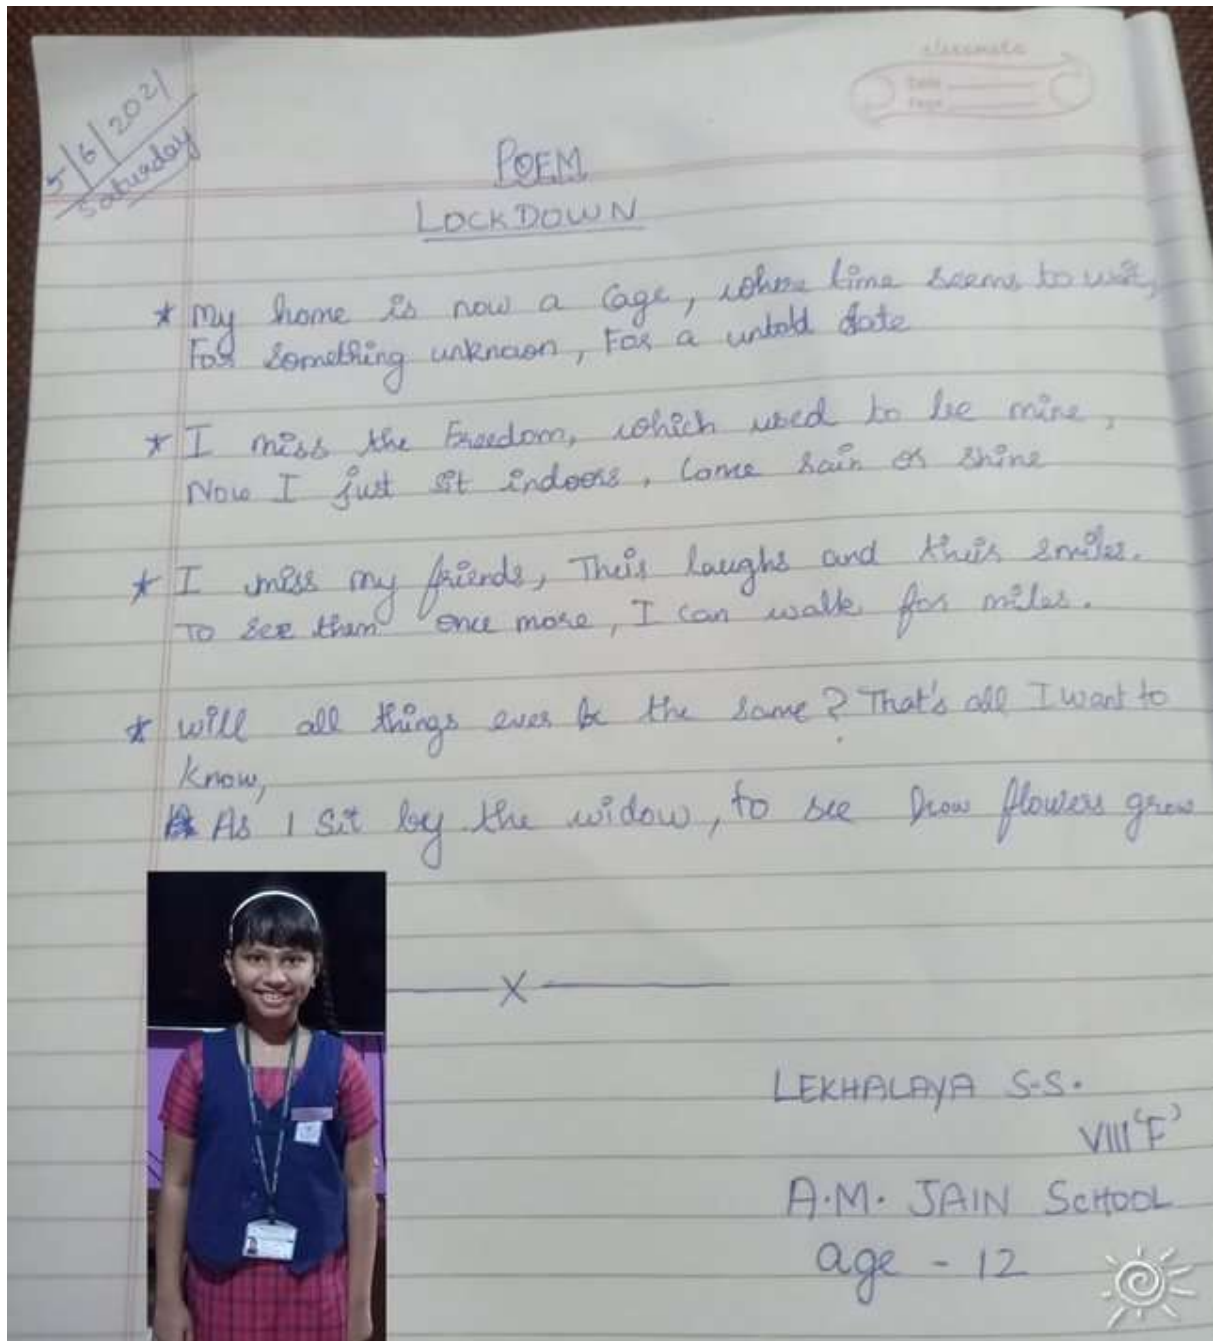 classmate
Date
Page
5/6/2021
Saturday
POEM
LOCKDOWN
* My home is now a Cage, where time seems to wait,
For something unknown, For a untold date
* I miss the Freedom, which used to be mine,
Now I just sit indoors, Come rain or shine
* I miss my friends, Their laughs and their smiles.
To see them once more, I can walk for miles.
* will all things ever be the same? That's all I want to
know,
As I sit by the widow, to see how flowers grow
X
LEKHALAYA S.S.
VIII 'F'
A.M. JAIN SCHOOL
age - 12